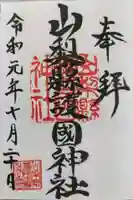 奉拝
山梨縣護國神社
令和元年七月二十日